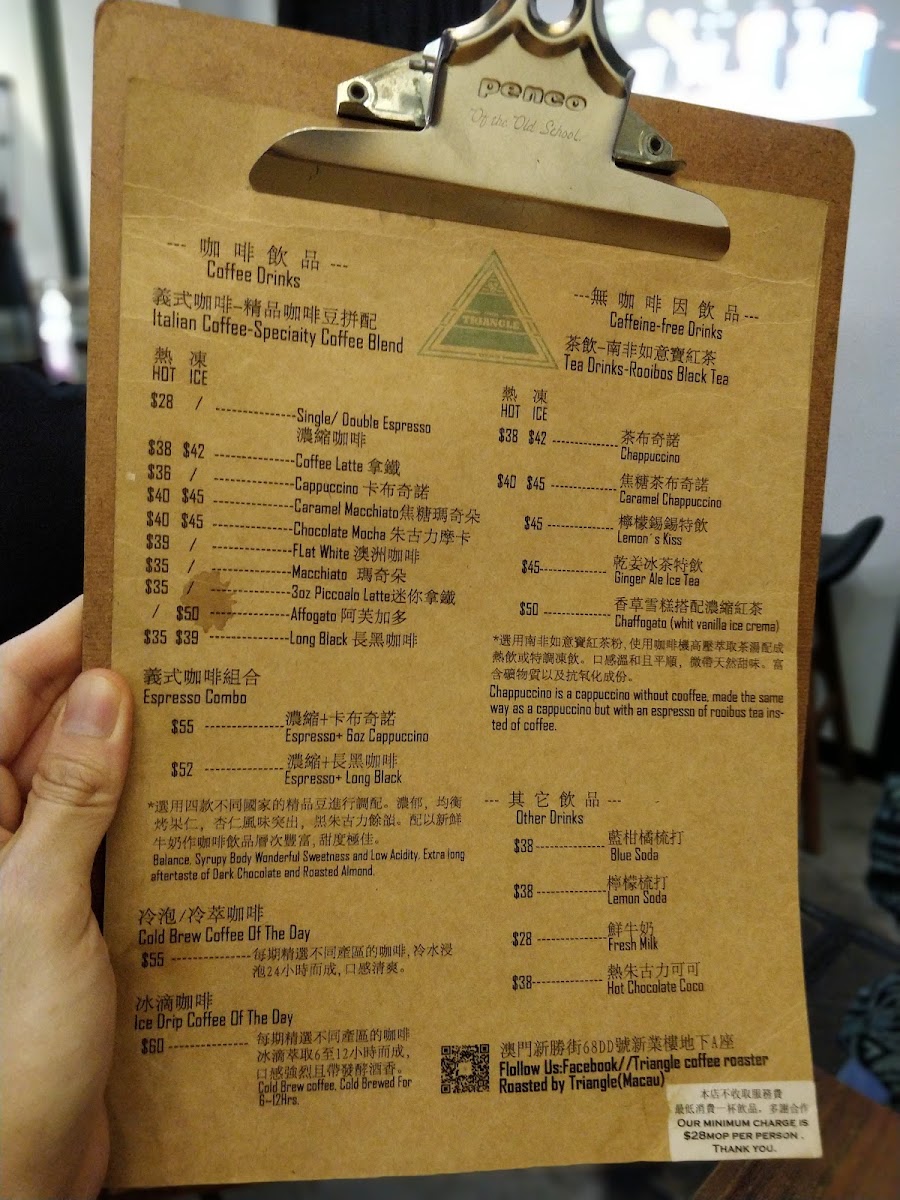 penco
"Of the Old School."
--- 咖啡飲品 ---
Coffee Drinks
義式咖啡-精品咖啡豆拼配
Italian Coffee-Speciaity Coffee Blend
TRIANGLE
熱 凍
HOT ICE
$28 / --------------Single/ Double Espresso
濃縮咖啡
$38 $42 --------------Coffee Latte 拿鐵
$36 / --------------Cappuccino 卡布奇諾
$40 $45 --------------Caramel Macchiato焦糖瑪奇朵
$40 $45 --------------Chocolate Mocha 朱古力摩卡
$39 / --------------FLat White 澳洲咖啡
$35 / --------------Macchiato 瑪奇朵
$35 / --------------3oz Piccoalo Latte迷你拿鐵
/ $50 --------------Affogato 阿芙加多
$35 $39 --------------Long Black 長黑咖啡
義式咖啡組合
Espresso Combo
$55 --------------濃縮+卡布奇諾
Espresso+ 6oz Cappuccino
$52 --------------濃縮+長黑咖啡
Espresso+ Long Black
*選用四款不同國家的精品豆進行調配。濃郁，均衡
烤果仁，杏仁風味突出，黑朱古力餘韻。配以新鮮
牛奶作咖啡飲品層次豐富,甜度極佳。
Balance, Syrupy Body Wonderful Sweetness and Low Acidity. Extra long
aftertaste of Dark Chocolate and Roasted Almond.
冷泡/冷萃咖啡
Cold Brew Coffee Of The Day
$55 --------------每期精選不同產區的咖啡,冷水浸
泡24小時而成,口感清爽。
冰滴咖啡
Ice Drip Coffee Of The Day
$60 --------------每期精選不同產區的咖啡
冰滴萃取6至12小時而成,
口感強烈且帶發酵酒香。
Cold Brew coffee. Cold Brewed For
6~12Hrs.
---無咖啡因飲品---
Caffeine-free Drinks
茶飲-南非如意寶紅茶
Tea Drinks-Rooibos Black Tea
熱 凍
HOT ICE
$38 $42 --------------茶布奇諾
Chappuccino
$40 $45 --------------焦糖茶布奇諾
Caramel Chappuccino
$45 --------------檸檬錫錫特飲
Lemon´s Kiss
$45--------------乾姜冰茶特飲
Ginger Ale Ice Tea
$50 --------------香草雪糕搭配濃縮紅茶
Chaffogato (whit vanilla ice crema)
*選用南非如意寶紅茶粉,使用咖啡機高壓萃取茶湯配成
熱飲或特調凍飲。口感溫和且平順，微帶天然甜味、富
含礦物質以及抗氧化成份。
Chappuccino is a cappuccino without cooffee, made the same
way as a cappuccino but with an espresso of rooibos tea ins-
ted of coffee.
--- 其它飲品 ---
Other Drinks
$38--------------藍柑橘梳打
Blue Soda
$38 --------------檸檬梳打
Lemon Soda
$28 --------------鮮牛奶
Fresh Milk
$38--------------熱朱古力可可
Hot Chocolate Coco
澳門新勝街68DD號新業樓地下A座
Flollow Us:Facebook//Triangle coffee roaster
Roasted by Triangle(Macau)
本店不收取服務費
最低消費一杯飲品，多謝合作
OUR MINIMUM CHARGE IS
$28MOP PER PERSON .
THANK YOU.